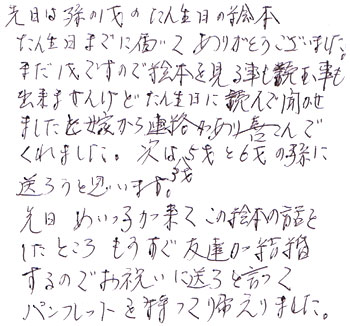 先日は孫の1才のたん生日の絵本
たん生日までに届いてありがとうございました。
まだ1才ですので絵本を見る事も読む事も
出来ませんけどたん生日に読んで聞かせ
ましたと嫁から連絡があり喜こんで
くれました。次は5才と6才の孫に
3才
送ろうと思います。
先日めいっ子が来てこの絵本の話を
したところもうすぐ友達が結婚
するのでお祝いに送ろと言って
パンフレットを持って帰えりました。